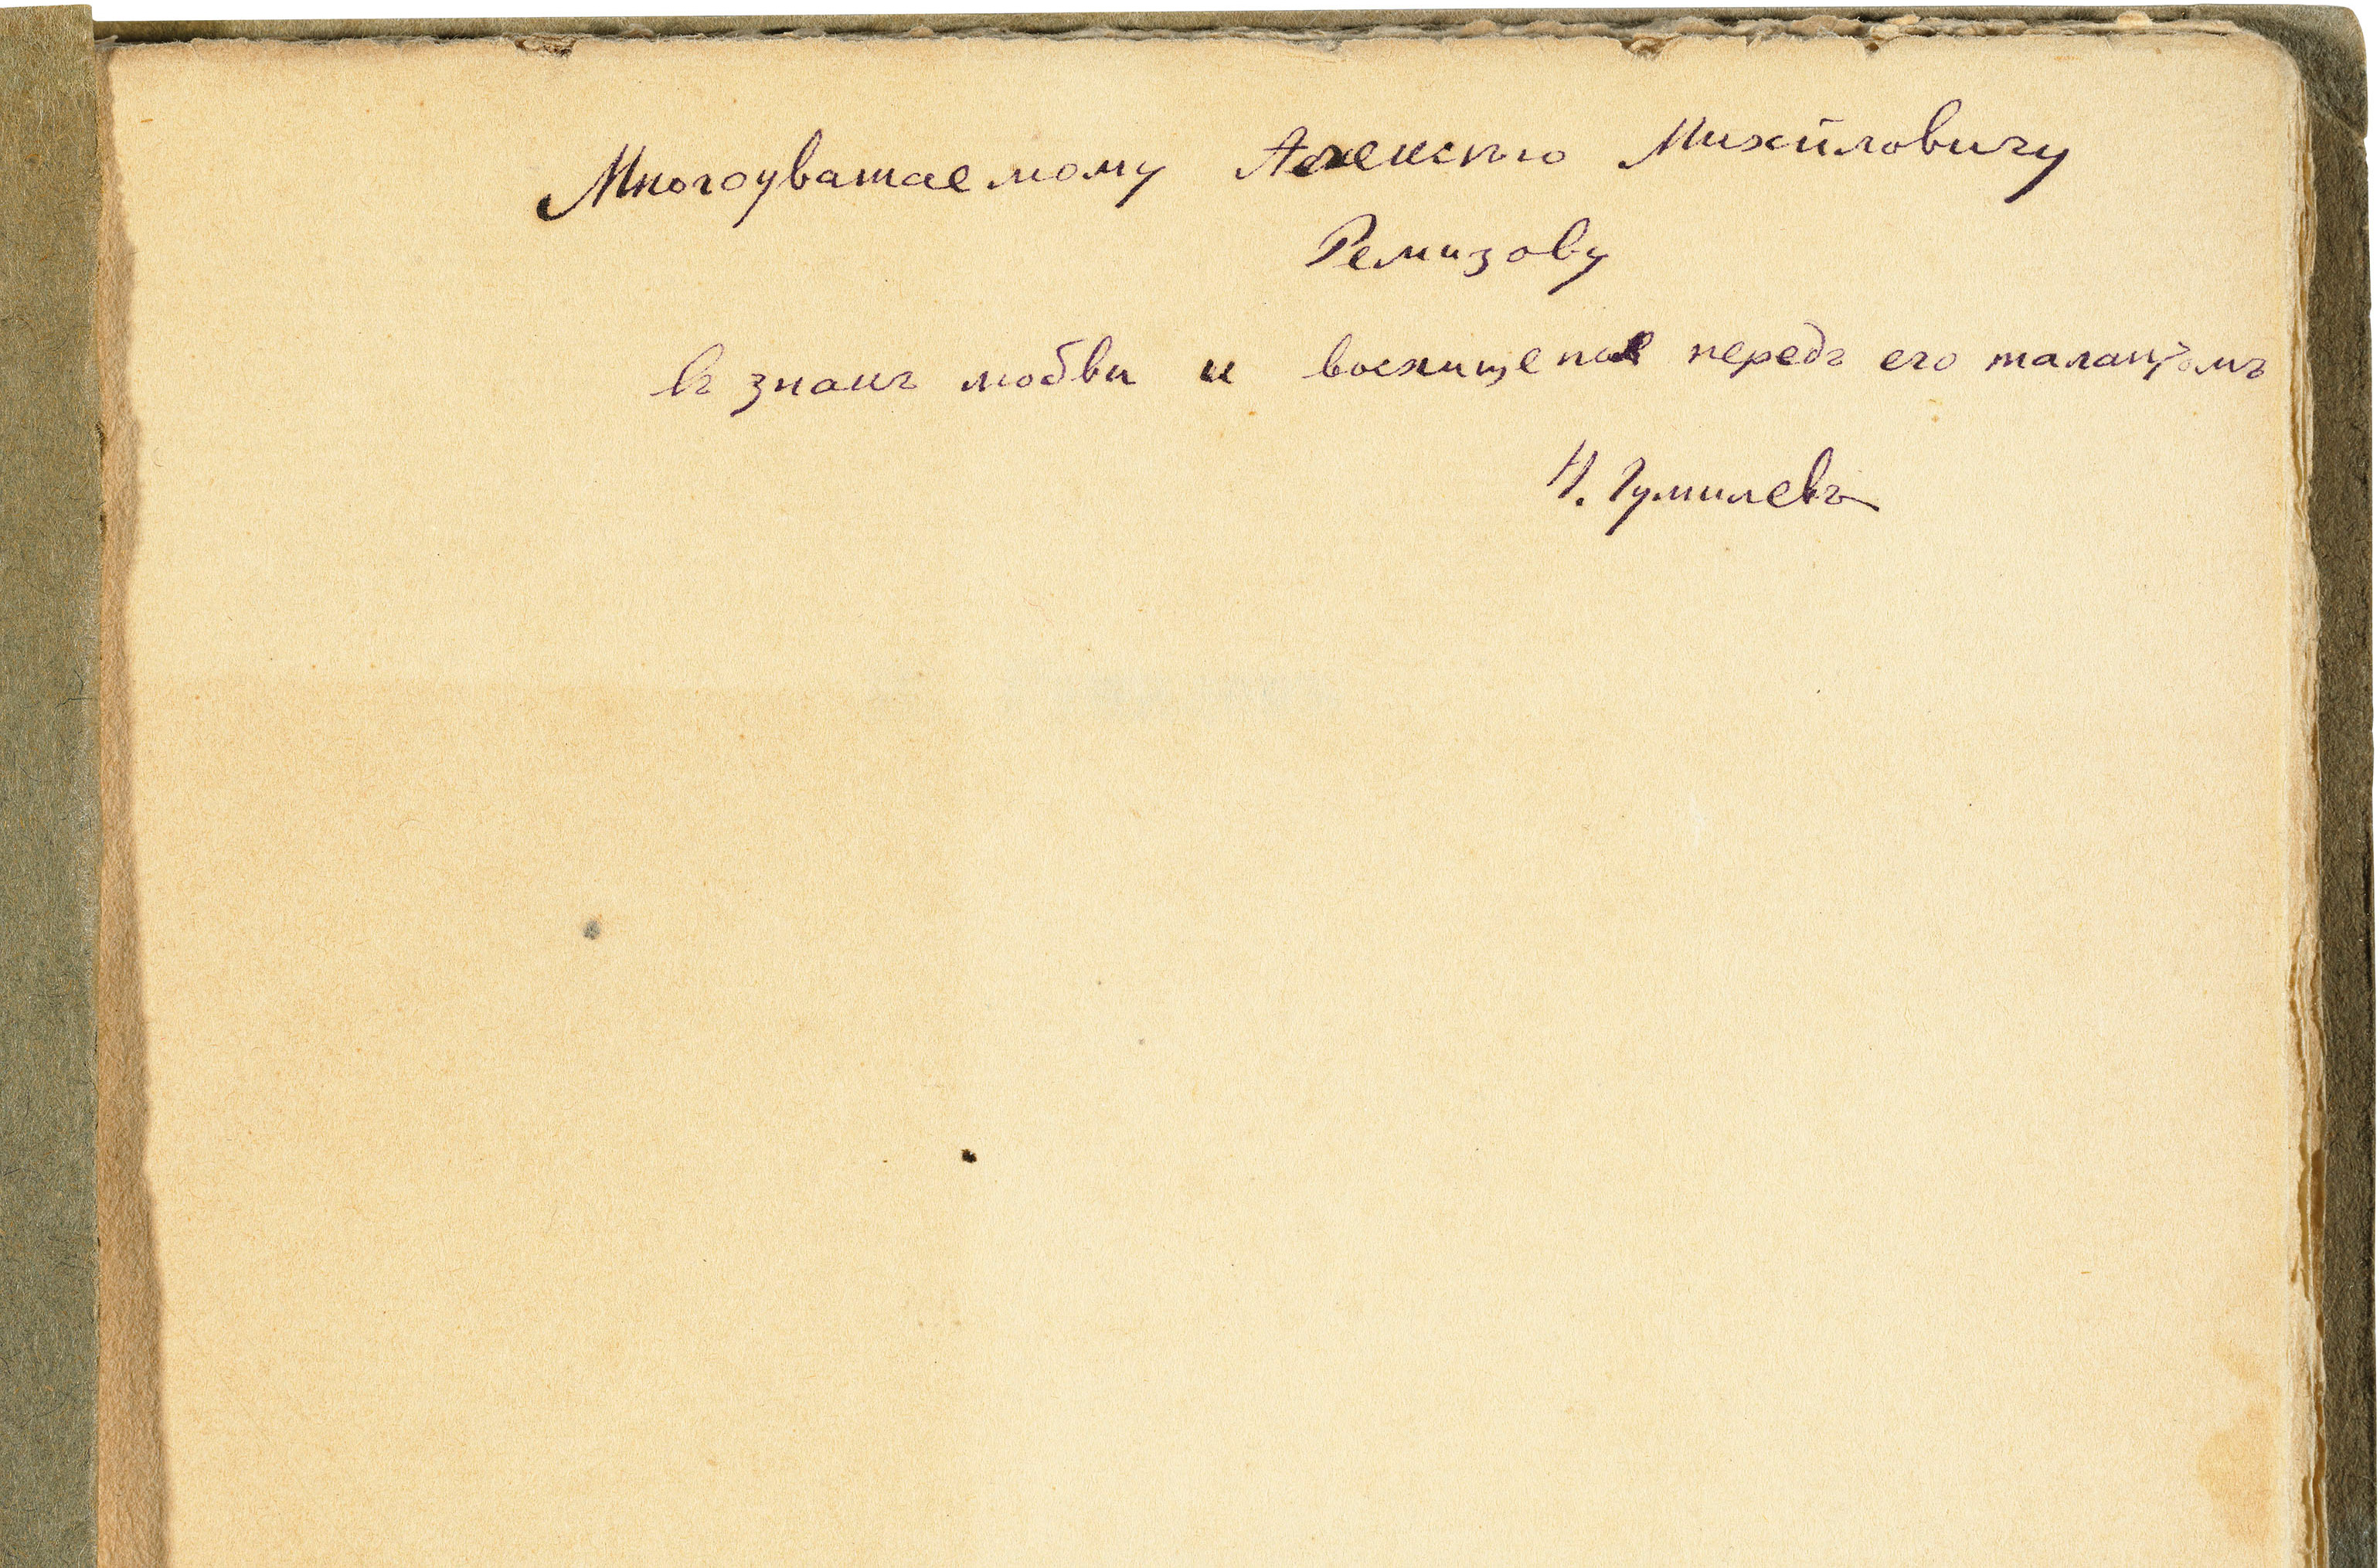 Многоуважаемому Алексѣю Михйловичу
Ремизову
въ знакъ любви и восхищенья передъ его талантомъ
Н. Гумилевъ